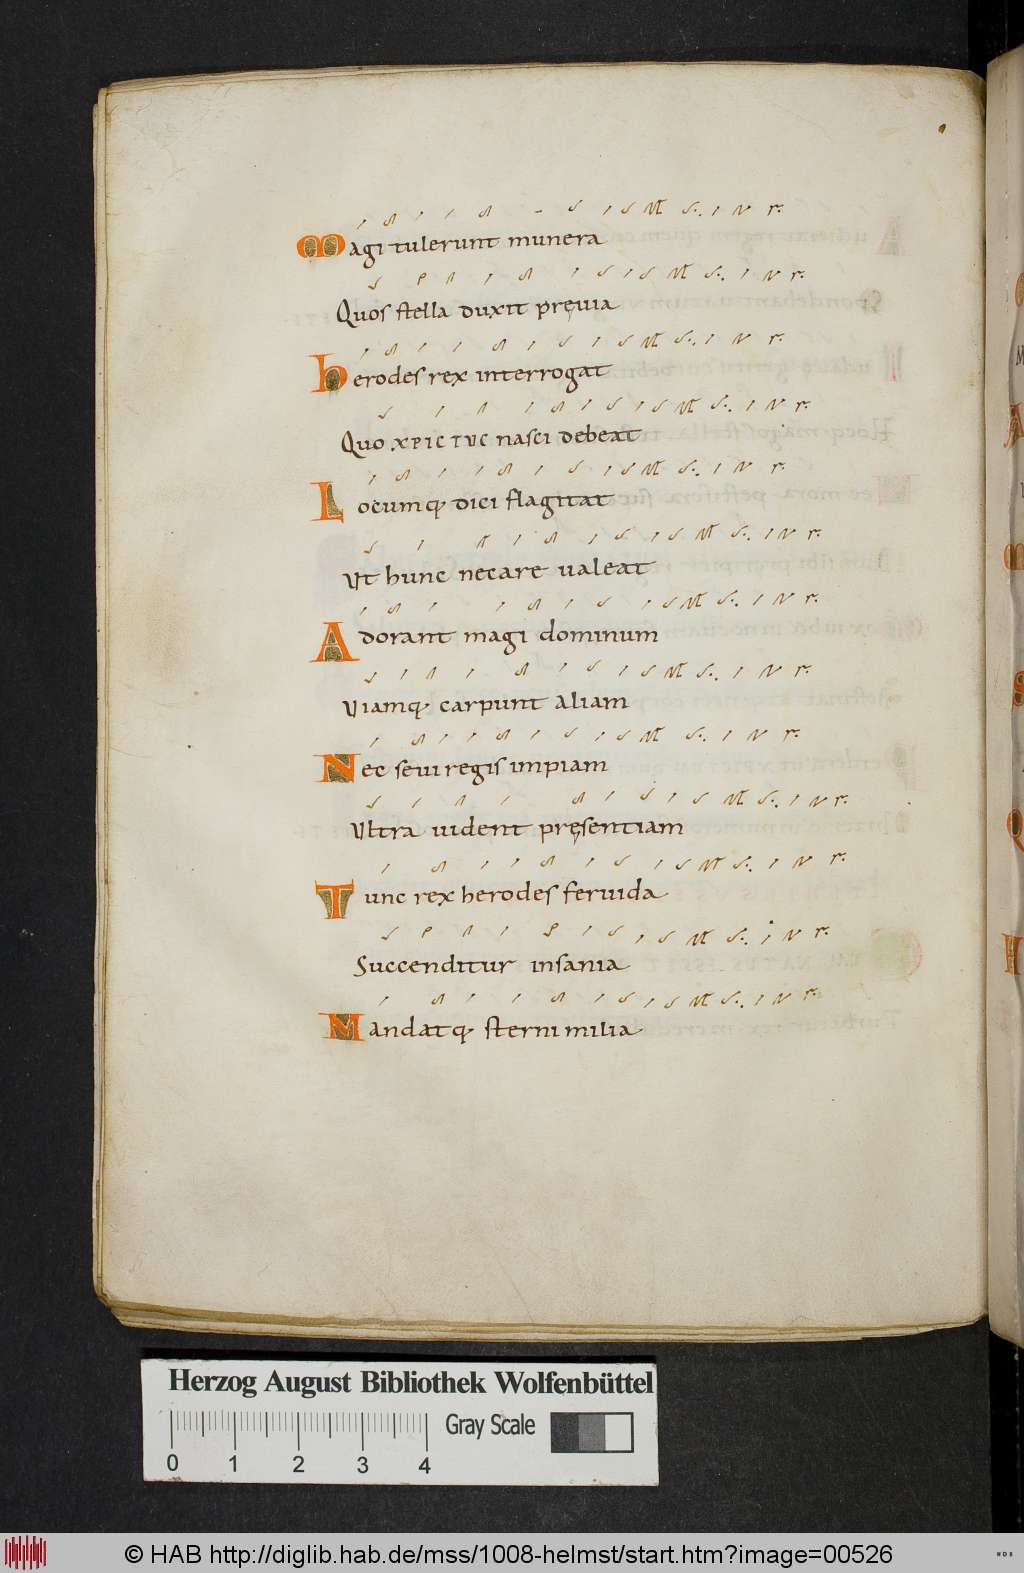 Magi tulerunt munera
Quos stella duxit pręuia
herodes rex interrogat
Quo xpictuc nasci debeat
Locumq; dici flagitat
Vt hunc necare ualeat
Adorant magi dominum
Viamq; carpunt aliam
Nec seui regis impiam
Vltra uident pręsentiam
Tunc rex herodes feruida
Succenditur insania
Mandatq; sterni milia
Herzog August Bibliothek Wolfenbüttel
Gray Scale
0 1 2 3 4
© HAB http://diglib.hab.de/mss/1008-helmst/start.htm?image=00526